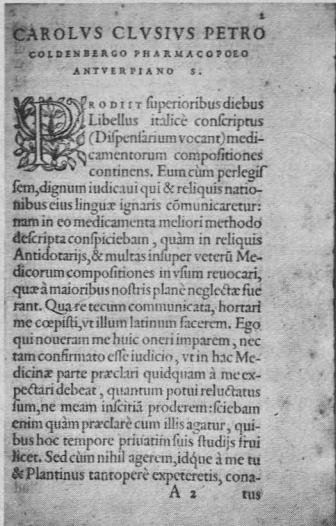 2
CAROLVS CLVSIVS PETRO
COLDENBERGO PHARMACOPOEO
ANTVERPIANO S.
PRODIIT superioribus diebus
Libellus italicè conscriptus
(Dispensarium vocant) medi-
camentorum compositiones
continens. Eum cùm perlegis
sem, dignum iudicaui qui & reliquis natio-
nibus eius linguæ ignaris cōmunicaretur:
nam in eo medicamenta meliori methodo
descripta conspiciebam, quàm in reliquis
Antidotarijs, & multas insuper veterū Me-
dicorum compositiones in vsum reuocari,
quæ à maioribus nostris planè neglectæ fue
rant. Qua re tecum communicata, hortari
me cœpisti, vt illum latinum facerem. Ego
qui noueram me huic oneri imparem, nec
tam confirmato esse iudicio, vt in hac Me-
dicinæ parte præclari quidquam à me ex-
pectari debeat, quantum potui reluctatus
sum, ne meam inscitiã proderem: sciebam
enim quàm præclarè cum illis agatur, qui-
bus hoc tempore priuatim suis studijs frui
licet. Sed cùm nihil agerem, idq́ue à me tu
& Plantinus tantoperè expeteretis, cona-
A 2 tus